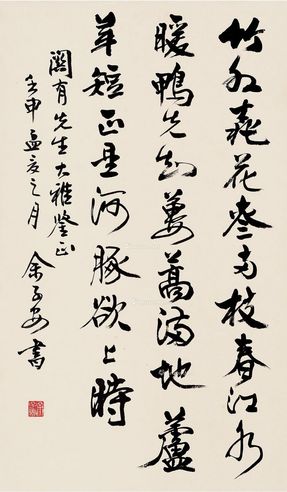 竹外桃花叁兩枝春江水
暖鴨先知蔞蒿滿地蘆
芽短正是河豚欲上時
有先生大雅鑒正
壬申孟夏之月 余子安書